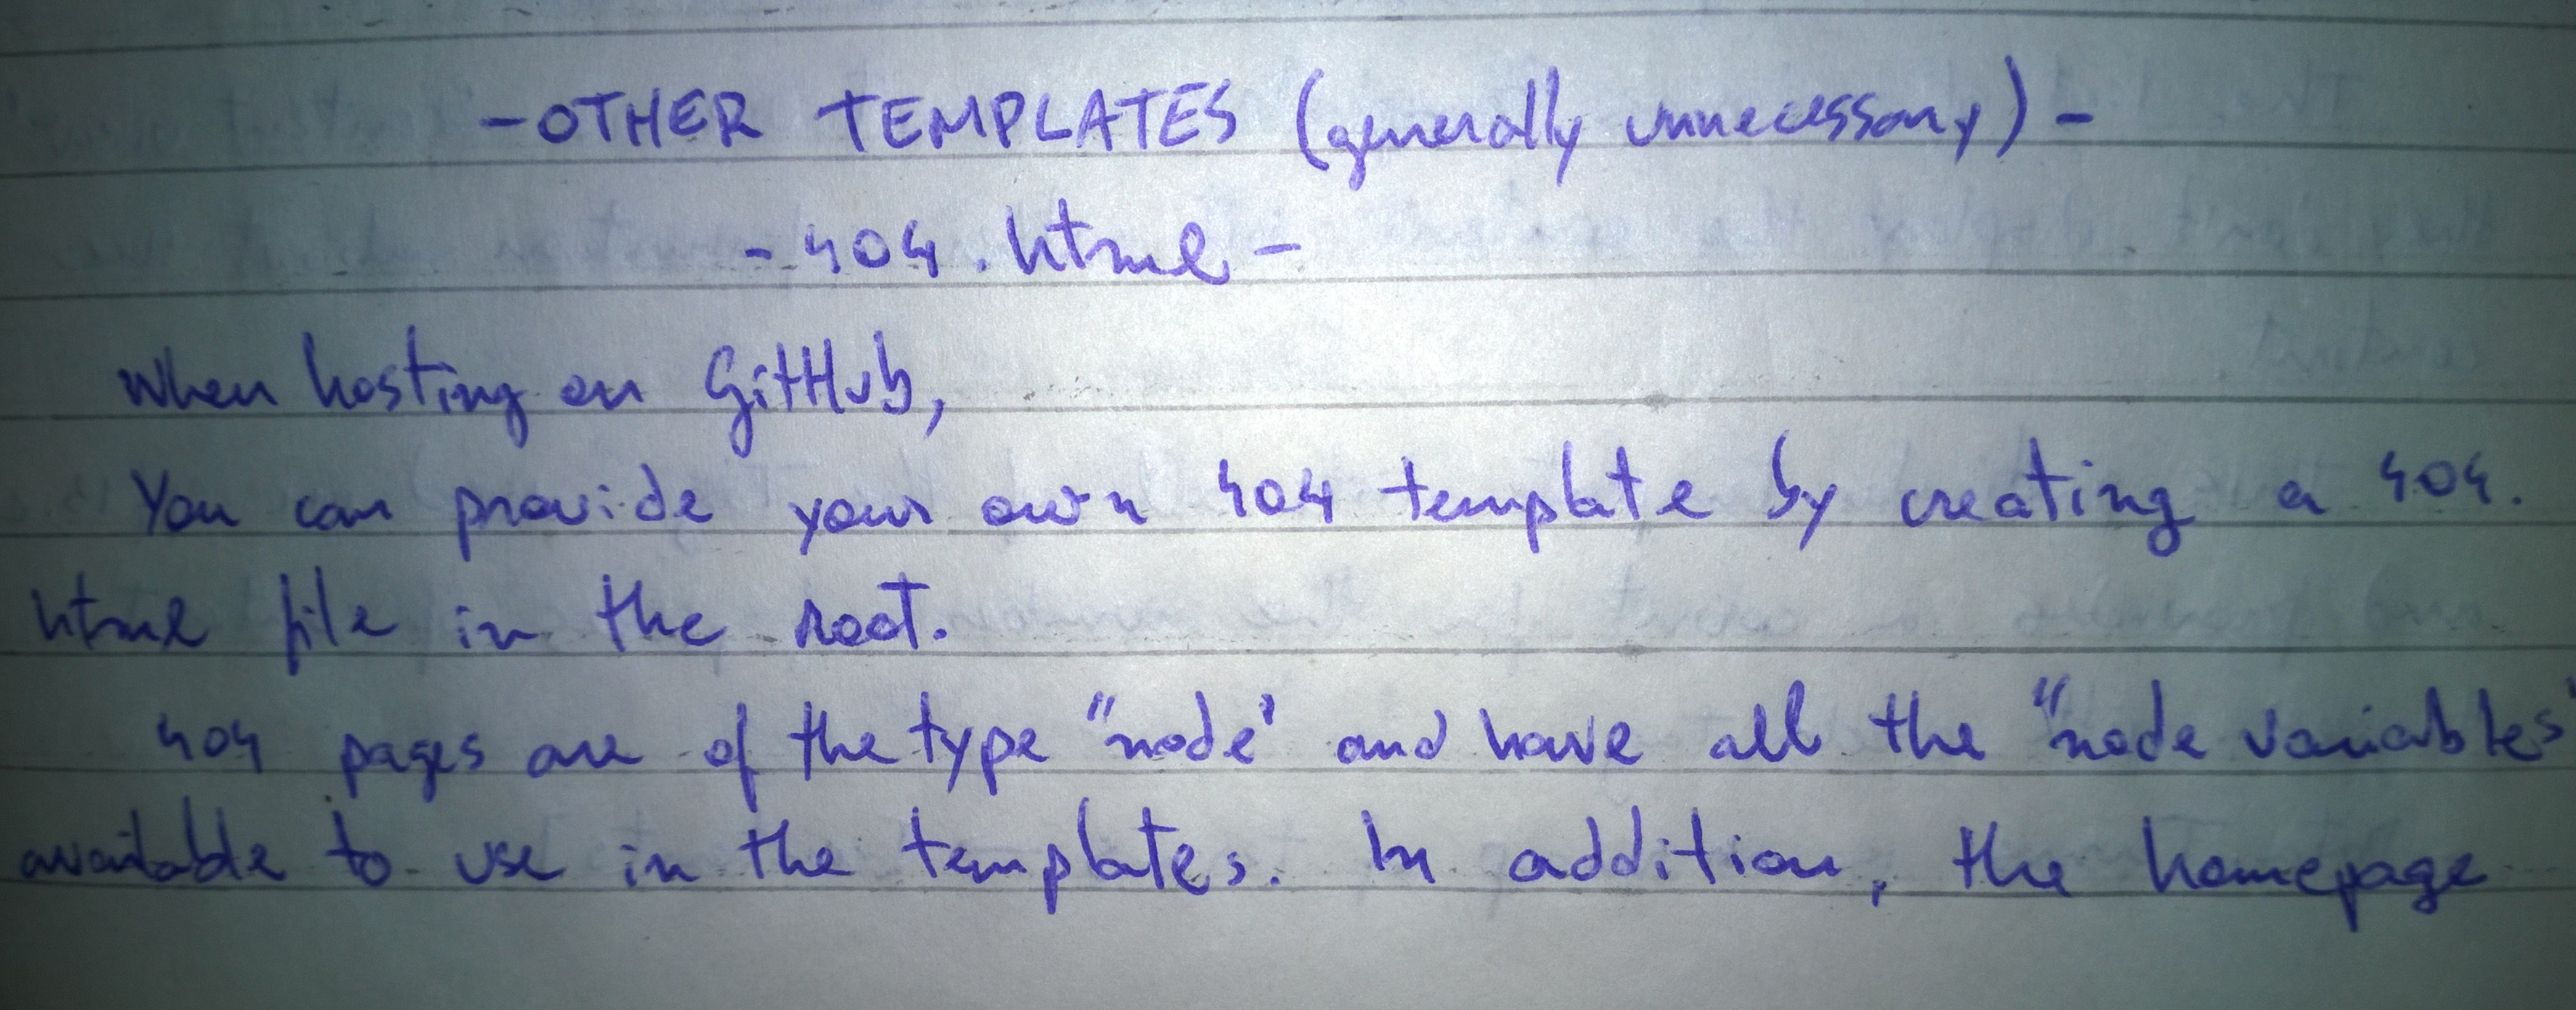 -OTHER TEMPLATES (generally unnecessary)-
-404.html-
When hosting on GitHub,
You can provide your own 404 template by creating a 404.
html file in the root.
404 pages are of the type "node' and have all the "node variables"
available to use in the templates. In addition, the homepage